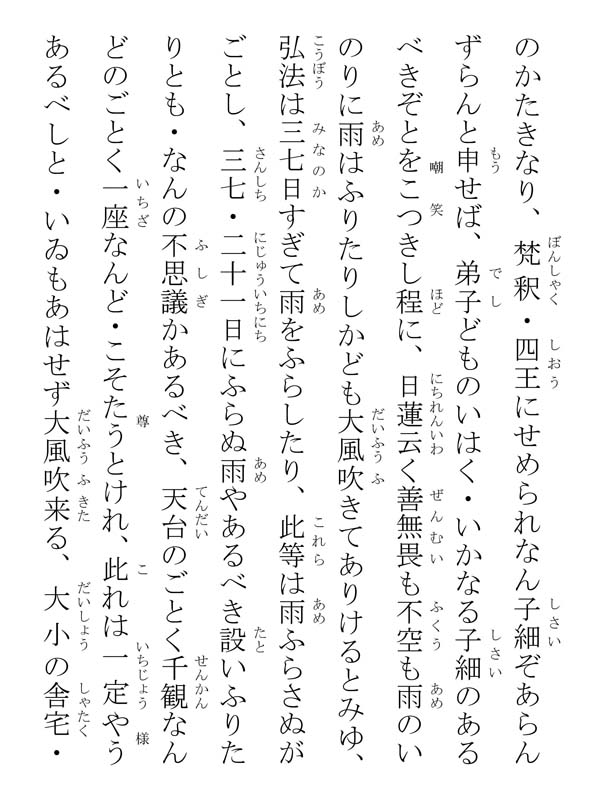 のかたきなり、梵釈・四王にせめられなん子細ぞあらん
ずらんと申せば、弟子どものいはく・いかなる子細のある
べきぞとをこつきし程に、日蓮云く善無畏も不空も雨のい
のりに雨はふりたりしかども大風吹きてありけるとみゆ、
弘法は三七日すぎて雨をふらしたり、此等は雨ふらさぬが
ごとし、三七・二十一日にふらぬ雨やあるべき設いふりた
りとも・なんの不思議かあるべき、天台のごとく千観なん
どのごとく一座なんど・こそたうとけれ、此れは一定やう
あるべしと・いゐもあはせず大風吹来る、大小の舎宅・